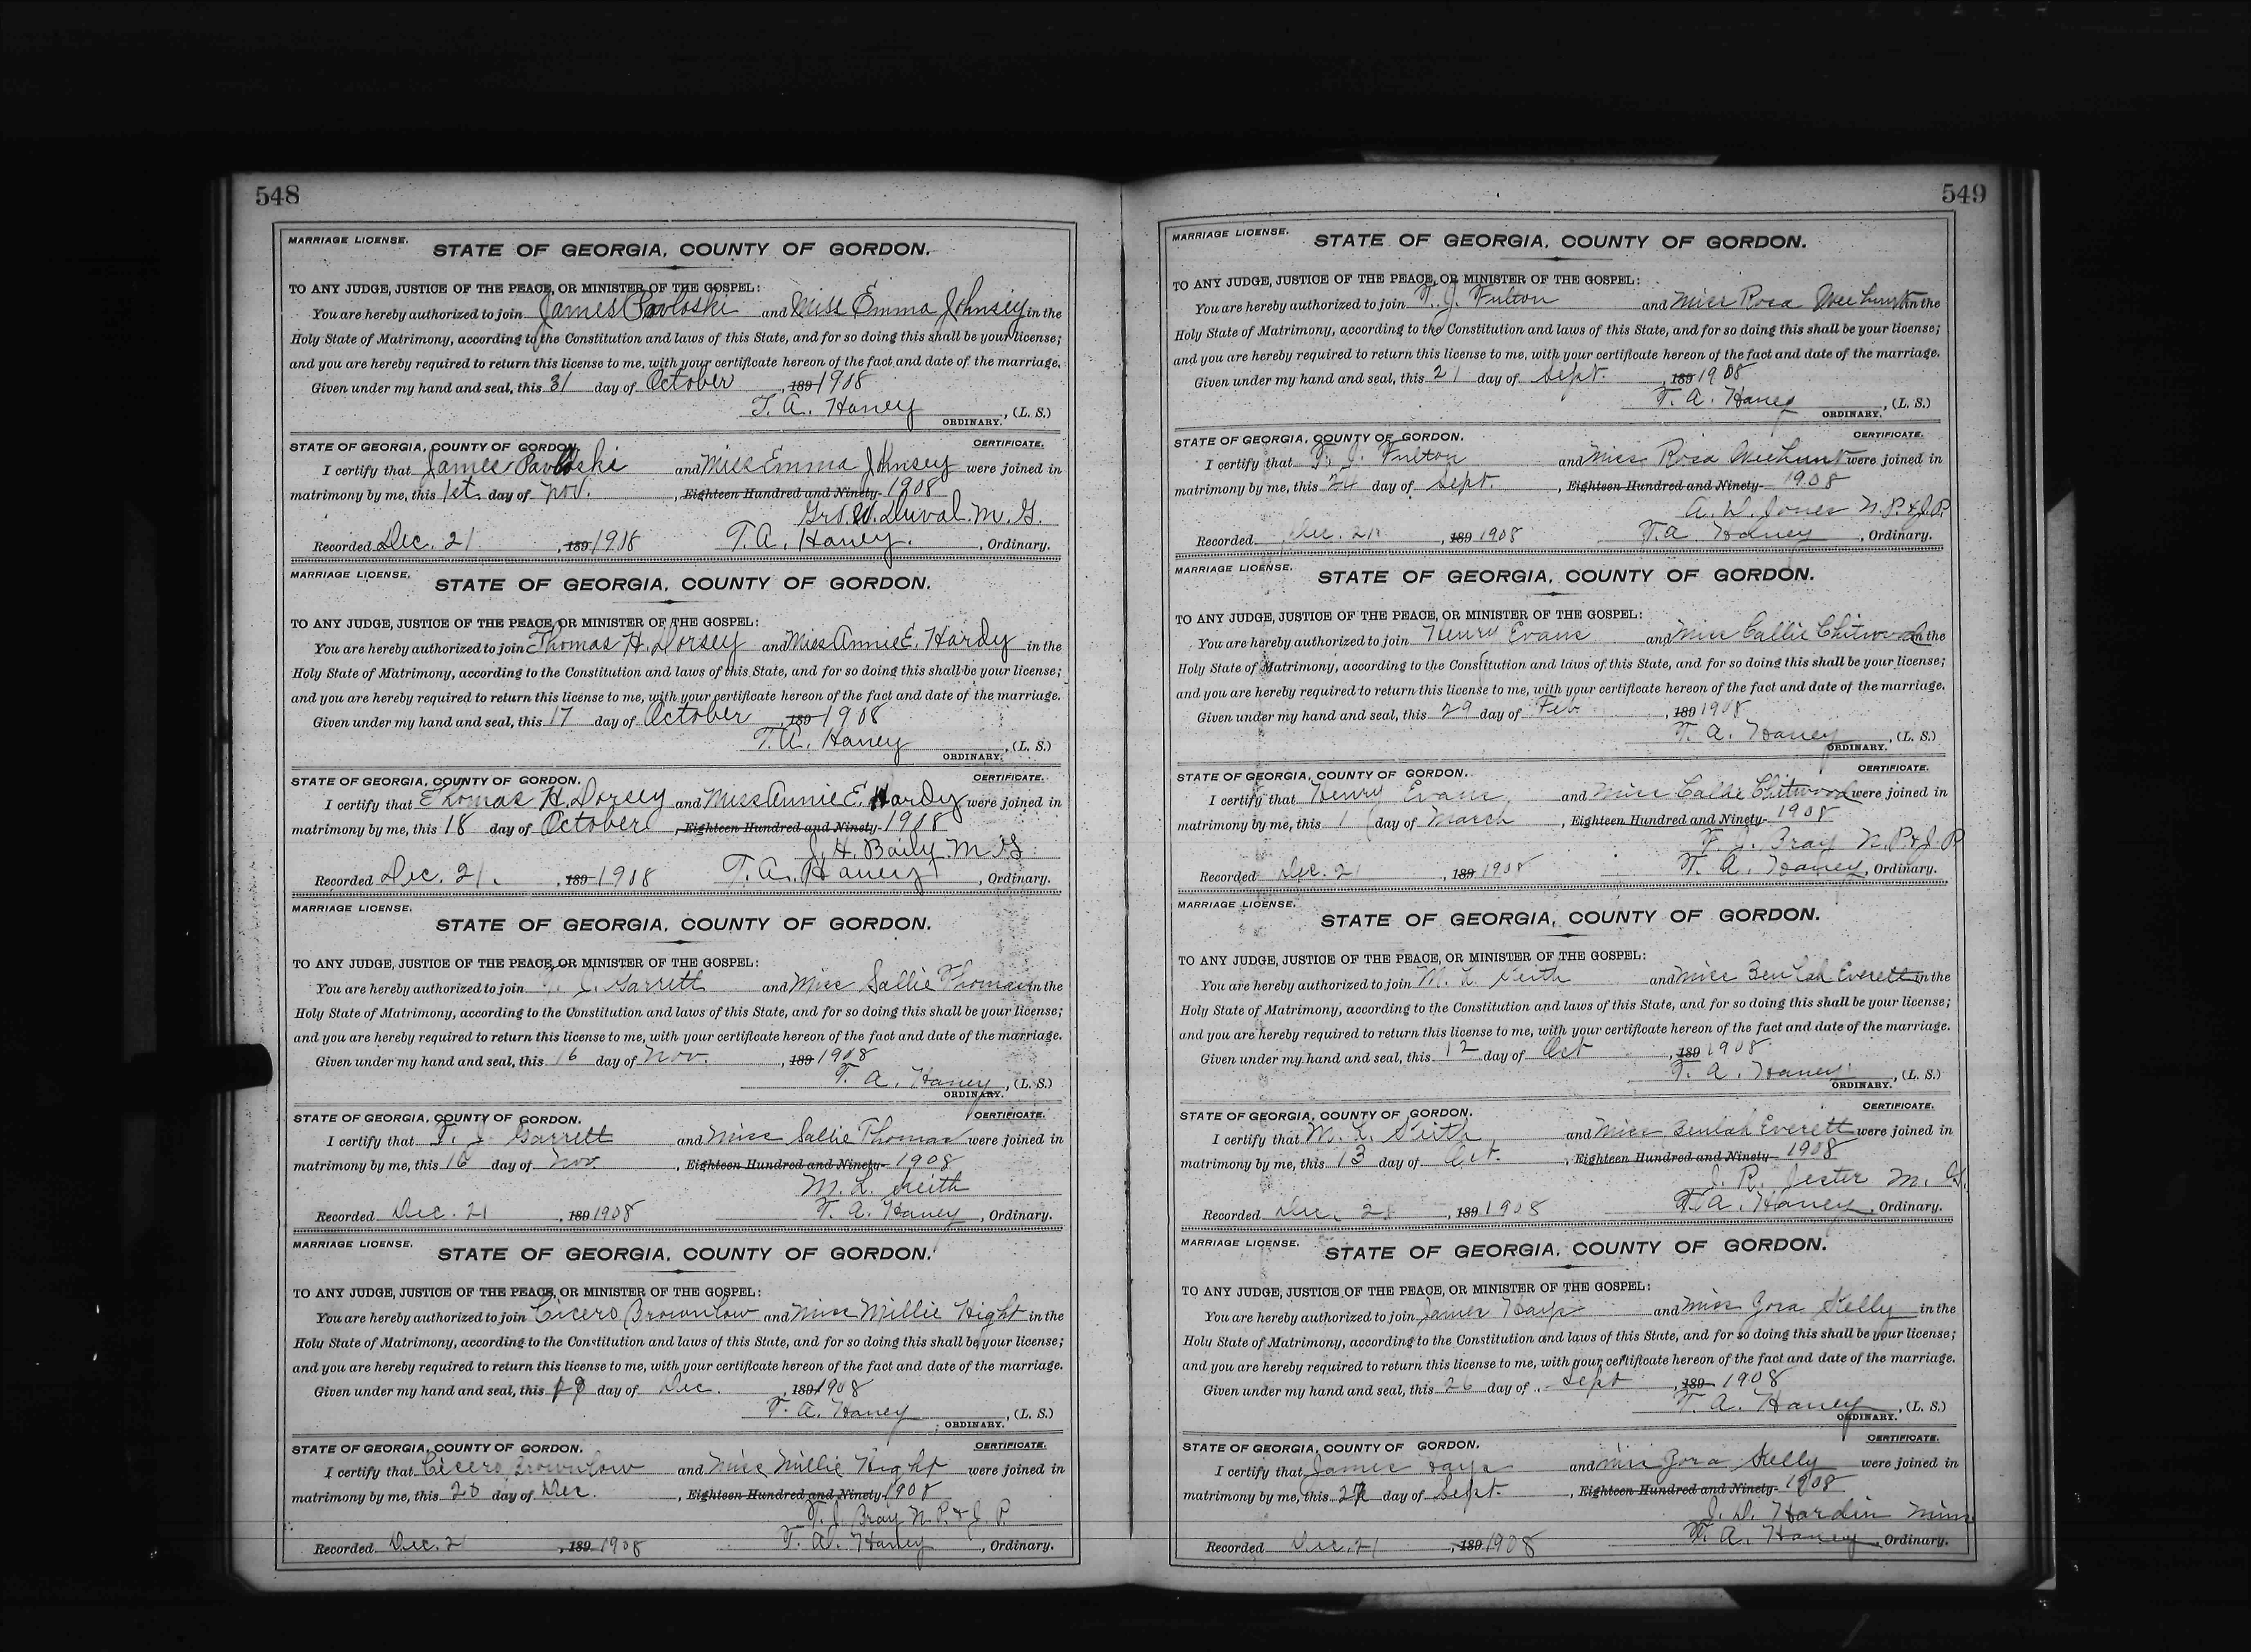 548
MARRIAGE LICENSE.
STATE OF GEORGIA, COUNTY OF GORDON.
TO ANY JUDGE, JUSTICE OF THE PEACE, OR MINISTER OF THE GOSPEL:
You are hereby authorized to join James Pavloski and Miss Emma Johnsey in the
Holy State of Matrimony, according to the Constitution and laws of this State, and for so doing this shall be your license;
and you are hereby required to return this license to me, with your certificate hereon of the fact and date of the marriage.
Given under my hand and seal, this 31 day of October, 189 1908
T. A. Haney, (L. S.)
ORDINARY.
STATE OF GEORGIA, COUNTY OF GORDON. CERTIFICATE.
I certify that James Pavloski and Miss Emma Johnsey were joined in
matrimony by me, this 1st day of Nov., Eighteen Hundred and Ninety- 1908
Geo. W. Duval M. G.
Recorded Dec. 21, 189 1908 T. A. Haney, Ordinary.
MARRIAGE LICENSE.
STATE OF GEORGIA, COUNTY OF GORDON.
TO ANY JUDGE, JUSTICE OF THE PEACE, OR MINISTER OF THE GOSPEL:
You are hereby authorized to join Thomas H. Dorsey and Miss Annie E. Hardy in the
Holy State of Matrimony, according to the Constitution and laws of this State, and for so doing this shall be your license;
and you are hereby required to return this license to me, with your certificate hereon of the fact and date of the marriage.
Given under my hand and seal, this 17 day of October, 189 1908
T. A. Haney, (L. S.)
ORDINARY.
STATE OF GEORGIA, COUNTY OF GORDON. CERTIFICATE.
I certify that Thomas H. Dorsey and Miss Annie E. Hardy were joined in
matrimony by me, this 18 day of October, Eighteen Hundred and Ninety- 1908
J. H. Baily M G
Recorded Dec. 21, 189 1908 T. A. Haney, Ordinary.
MARRIAGE LICENSE.
STATE OF GEORGIA, COUNTY OF GORDON.
TO ANY JUDGE, JUSTICE OF THE PEACE, OR MINISTER OF THE GOSPEL:
You are hereby authorized to join J. Garrett and Miss Sallie Thomas in the
Holy State of Matrimony, according to the Constitution and laws of this State, and for so doing this shall be your license;
and you are hereby required to return this license to me, with your certificate hereon of the fact and date of the marriage.
Given under my hand and seal, this 16 day of Nov., 189 1908
T. A. Haney, (L. S.)
ORDINARY.
STATE OF GEORGIA, COUNTY OF GORDON. CERTIFICATE.
I certify that F. J. Garrett and Miss Sallie Thomas were joined in
matrimony by me, this 16 day of Nov., Eighteen Hundred and Ninety- 1908
M. L. Keith
Recorded Dec. 21, 189 1908 T. A. Haney, Ordinary.
MARRIAGE LICENSE.
STATE OF GEORGIA, COUNTY OF GORDON.
TO ANY JUDGE, JUSTICE OF THE PEACE, OR MINISTER OF THE GOSPEL:
You are hereby authorized to join Cicero Brownlow and Miss Millie Hight in the
Holy State of Matrimony, according to the Constitution and laws of this State, and for so doing this shall be your license;
and you are hereby required to return this license to me, with your certificate hereon of the fact and date of the marriage.
Given under my hand and seal, this day of Dec., 189 1908
T. A. Haney, (L. S.)
ORDINARY.
STATE OF GEORGIA, COUNTY OF GORDON. CERTIFICATE.
I certify that Cicero Brownlow and Miss Millie Hight were joined in
matrimony by me, this 20 day of Dec., Eighteen Hundred and Ninety- 1908
F. J. Bray N. P. & J. P.
Recorded Dec. 21, 189 1908 T. A. Haney, Ordinary.
549
MARRIAGE LICENSE.
STATE OF GEORGIA, COUNTY OF GORDON.
TO ANY JUDGE, JUSTICE OF THE PEACE, OR MINISTER OF THE GOSPEL:
You are hereby authorized to join F. J. Fulton and Miss Rosa Weehunt in the
Holy State of Matrimony, according to the Constitution and laws of this State, and for so doing this shall be your license;
and you are hereby required to return this license to me, with your certificate hereon of the fact and date of the marriage.
Given under my hand and seal, this 21 day of Sept., 189 1908
T. A. Haney, (L. S.)
ORDINARY.
STATE OF GEORGIA, COUNTY OF GORDON. CERTIFICATE.
I certify that F. J. Fulton and Miss Rosa Weehunt were joined in
matrimony by me, this 24 day of Sept., Eighteen Hundred and Ninety- 1908
A. D. Jones N. P. & J. P.
Recorded Dec. 21, 189 1908 T. A. Haney, Ordinary.
MARRIAGE LICENSE.
STATE OF GEORGIA, COUNTY OF GORDON.
TO ANY JUDGE, JUSTICE OF THE PEACE, OR MINISTER OF THE GOSPEL:
You are hereby authorized to join Henry Evans and Miss Callie Chitwood in the
Holy State of Matrimony, according to the Constitution and laws of this State, and for so doing this shall be your license;
and you are hereby required to return this license to me, with your certificate hereon of the fact and date of the marriage.
Given under my hand and seal, this 29 day of Feb., 189 1908
T. A. Haney, (L. S.)
ORDINARY.
STATE OF GEORGIA, COUNTY OF GORDON. CERTIFICATE.
I certify that Henry Evans and Miss Callie Chitwood were joined in
matrimony by me, this 1 day of March, Eighteen Hundred and Ninety- 1908
F. J. Bray N. P. & J. P
Recorded Dec. 21, 189 1908 T. A. Haney, Ordinary.
MARRIAGE LICENSE.
STATE OF GEORGIA, COUNTY OF GORDON.
TO ANY JUDGE, JUSTICE OF THE PEACE, OR MINISTER OF THE GOSPEL:
You are hereby authorized to join M. L. Keith and Miss Beulah Everett in the
Holy State of Matrimony, according to the Constitution and laws of this State, and for so doing this shall be your license;
and you are hereby required to return this license to me, with your certificate hereon of the fact and date of the marriage.
Given under my hand and seal, this 12 day of Oct, 189 1908
T. A. Haney, (L. S.)
ORDINARY.
STATE OF GEORGIA, COUNTY OF GORDON. CERTIFICATE.
I certify that M. L. Keith and Miss Beulah Everett were joined in
matrimony by me, this 13 day of Oct., Eighteen Hundred and Ninety- 1908
J. R. Jester M. G.
Recorded Dec., 189 1908 T. A. Haney, Ordinary.
MARRIAGE LICENSE.
STATE OF GEORGIA, COUNTY OF GORDON.
TO ANY JUDGE, JUSTICE OF THE PEACE, OR MINISTER OF THE GOSPEL:
You are hereby authorized to join James Hays and Miss Zora Kelly in the
Holy State of Matrimony, according to the Constitution and laws of this State, and for so doing this shall be your license;
and you are hereby required to return this license to me, with your certificate hereon of the fact and date of the marriage.
Given under my hand and seal, this 26 day of Sept, 189 1908
T. A. Haney, (L. S.)
ORDINARY.
STATE OF GEORGIA, COUNTY OF GORDON. CERTIFICATE.
I certify that James Hays and Miss Zora Kelly were joined in
matrimony by me, this 27 day of Sept., Eighteen Hundred and Ninety- 1908
J. D. Hardin Minn
Recorded Dec. 21, 189 1908 T. A. Haney, Ordinary.